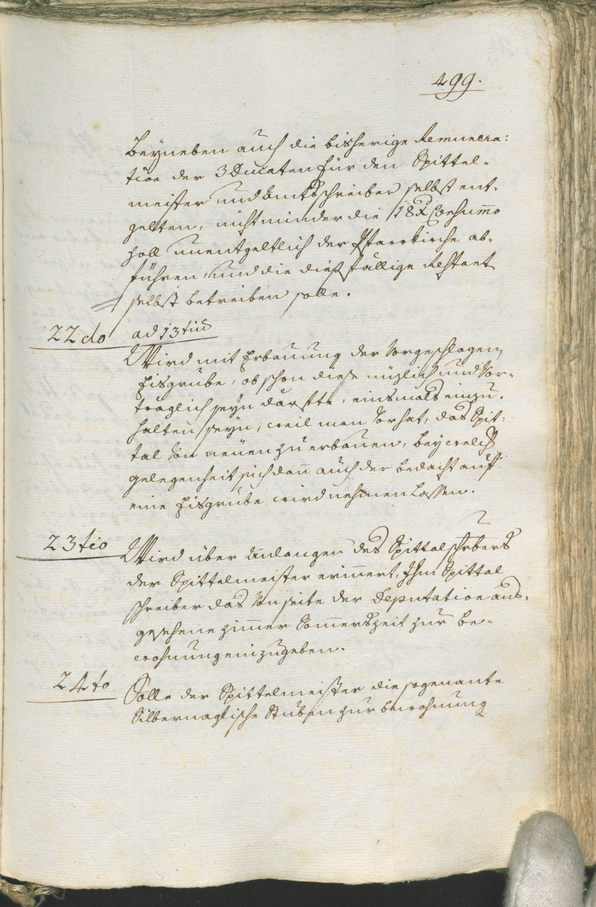 499.
Beyneben auch die bisherige Remunera:
tion der 3 Ducaten für den Spittel-
meister und Amtsschreiber selbst ent-
gelten, nicht minder die
soll unentgeltlich der Pfarrkirche ab-
führen, und die dießfällige
selbst betreiben solle.
22do ad 13tium
Wird mit Erbauung der vorgeschlagen
Eisgrube, obschon diese nüzlich und vor-
träglich seyn därfte, einsmals einzu-
halten seyn, weil man vorhat, das Spit-
tal von neuen zu erbauen, bey welch
gelegenheit sich dann auch der bedacht auf
eine Eisgrube wird nehmen lassen.
23tio Wird über anlangen des Spittalschrbers
der Spittelmeister erinnert, Ihm Spittal
schreiber das von seite der Deputation aus-
gesehene zimmer Sommerszeit zur be-
wohnung einzugeben.
24to Solle der Spittelmeister die sogenante
Silbernaglische Stuben zur bewohnung